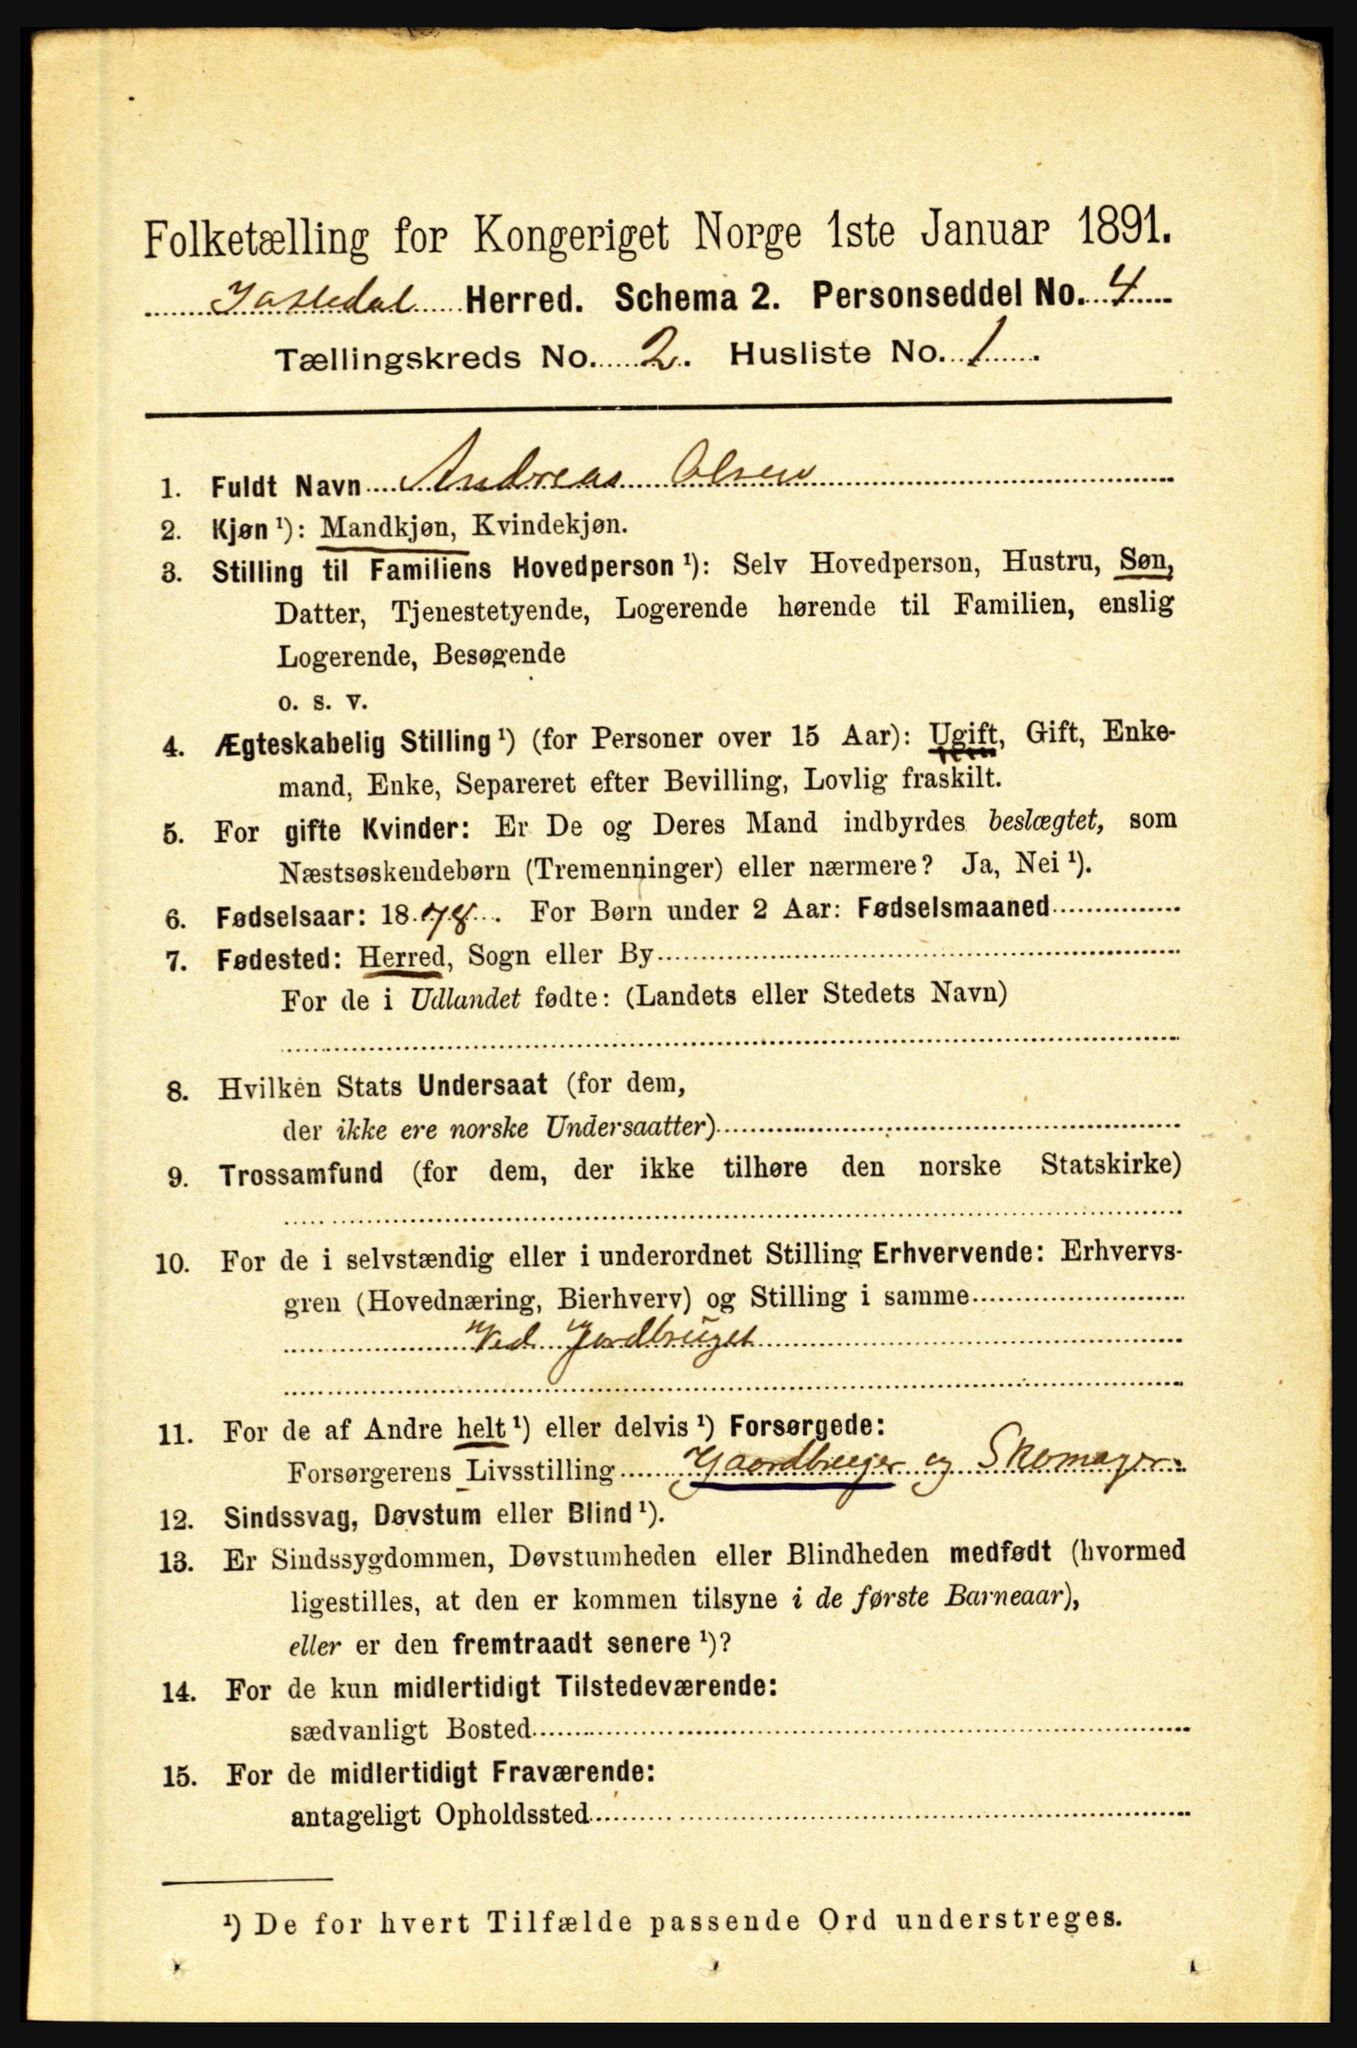 Folketælling for Kongeriget Norge 1ste Januar 1891.
Jostedal Herred. Schema 2. Personseddel No. 4
Tællingskreds No. 2. Husliste No. 1.
1. Fuldt Navn Andreas Olsen
2. Kjøn ¹): Mandkjøn, Kvindekjøn.
3. Stilling til Familiens Hovedperson ¹): Selv Hovedperson, Hustru, Søn,
Datter, Tjenestetyende, Logerende hørende til Familien, enslig
Logerende, Besøgende
o. s. v.
4. Ægteskabelig Stilling ¹) (for Personer over 15 Aar): Ugift, Gift, Enke-
mand, Enke, Separeret efter Bevilling, Lovlig fraskilt.
5. For gifte Kvinder: Er De og Deres Mand indbyrdes beslægtet, som
Næstsøskendebørn (Tremenninger) eller nærmere? Ja, Nei ¹).
6. Fødselsaar: 1878. For Børn under 2 Aar: Fødselsmaaned
7. Fødested: Herred, Sogn eller By
For de i Udlandet fødte: (Landets eller Stedets Navn)
8. Hvilken Stats Undersaat (for dem,
der ikke ere norske Undersaatter)
9. Trossamfund (for dem, der ikke tilhøre den norske Statskirke)
10. For de i selvstændig eller i underordnet Stilling Erhvervende: Erhvervs-
gren (Hovednæring, Bierhverv) og Stilling i samme
Ved Jordbruget
11. For de af Andre helt ¹) eller delvis ¹) Forsørgede:
Forsørgerens Livsstilling Gaardbruger og Skomager.
12. Sindssvag, Døvstum eller Blind ¹).
13. Er Sindssygdommen, Døvstumheden eller Blindheden medfødt (hvormed
ligestilles, at den er kommen tilsyne i de første Barneaar),
eller er den fremtraadt senere ¹)?
14. For de kun midlertidigt Tilstedeværende:
sædvanligt Bosted
15. For de midlertidigt Fraværende:
antageligt Opholdssted
¹) De for hvert Tilfælde passende Ord understreges.